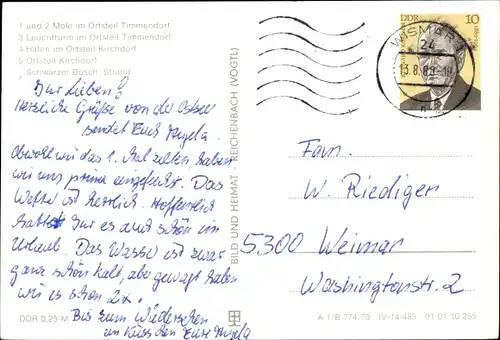 1 und 2 Mole im Ortsteil Timmendorf
3 Leuchtturm im Ortsteil Timmendorf
4 Hafen im Ortsteil Kirchdorf
5 Ortsteil Kirchdorf
Schwarzer Busch, Strand
Ihr Lieben!
Herzliche Grüße von der Ostsee
sendet Euch Angela.
Obwohl wir das 1. Mal zelten, haben
wir uns prima eingefuchst. Das
Wetter ist herrlich. Hoffentlich
hattet Ihr es auch schön im
Urlaub. Das Wasser ist zwar
ganz schön kalt, aber gewagt haben
wir es schon 2x.
Bis zum Wiedersehen
Eure Angela
DDR 0,25 M
BILD UND HEIMAT REICHENBACH (VOGTL)
DDR 10
WISMAR 1
24
Fam.
W. Riediger
5300 Weimar
Washingtonstr. 2
A 1/B 774/79 IV-14-483 01 01 10 255